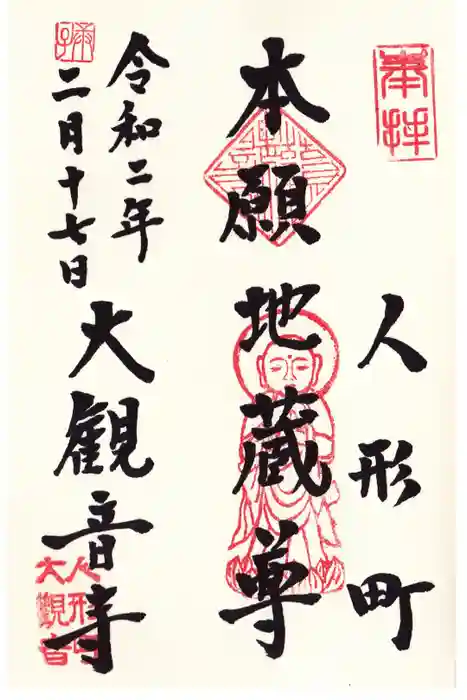 奉拝
人形町
本願地蔵尊
令和二年
二月十七日
大観音寺
人形町
大観音